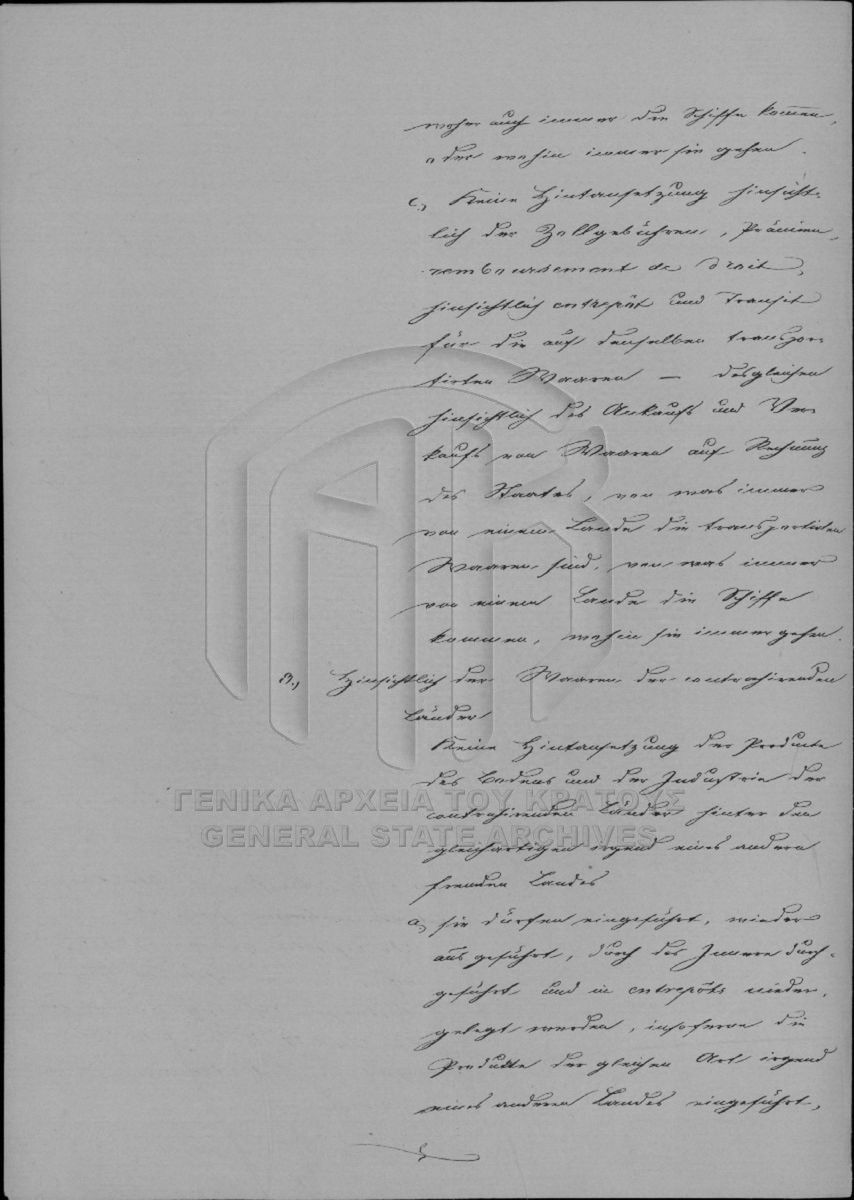 woher auch immer die Schiffe kommen,
oder wohin immer sie gehen.
c, Keine Hintansetzung hinsicht-
lich der Zollgebühren, Prämien,
remboursement de droit,
hinsichtlich entrepôt und Transit
für die auf denselben transpor-
tirten Waaren — desgleichen
hinsichtlich des Ankaufs und Ver-
kaufs von Waaren auf Rechnung
des Staates, von was immer
von einem Lande die transportirten
Waaren sind, von was immer
von einem Lande die Schiffe
kommen, wohin sie immer gehen.
B., Hinsichtlich der Waaren der contrahirenden
Länder
Keine Hintansetzung der Producte
des Bodens und der Industrie der
contrahirenden Länder hinter den
gleichartigen irgend eines andern
fremden Landes
a, sie dürfen eingeführt, wieder
ausgeführt, durch das Innere durch-
geführt und in entrepôts nieder-
gelegt werden, insoferne die
Produkte der gleichen Art irgend
eines anderen Landes eingeführt,
ΓΕΝΙΚΑ ΑΡΧΕΙΑ ΤΟΥ ΚΡΑΤΟΥΣ
GENERAL STATE ARCHIVES